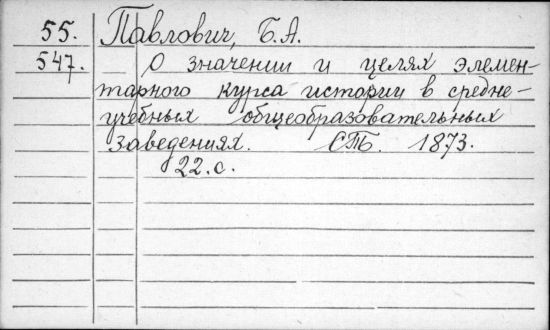 55. Павлович, Б.А.
547. О значении и целях элемен-
тарного курса истории в средне-
учебных общеобразовательных
заведениях. СПБ. 1873.
22.с.